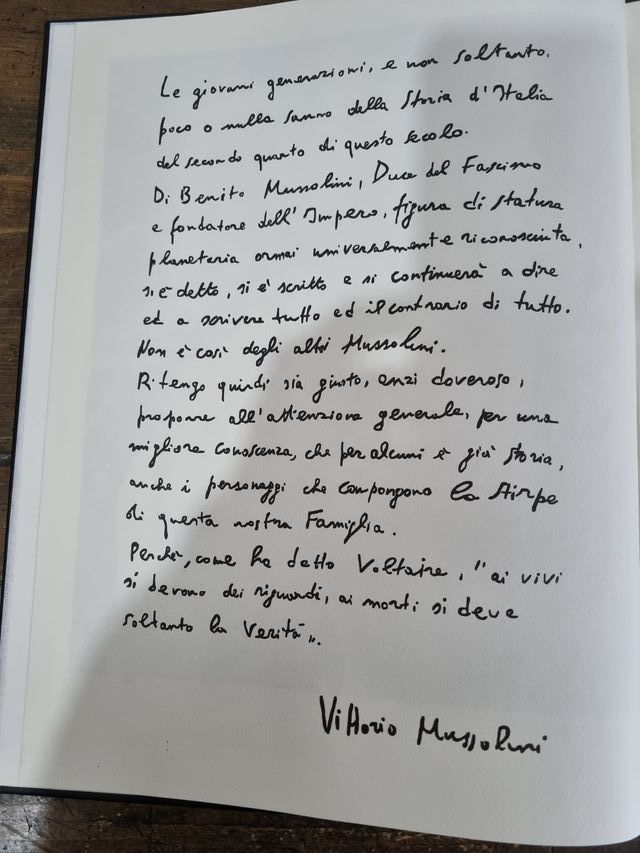 Le giovani generazioni, e non soltanto.
poco o nulla sanno della Storia d'Italia
del secondo quarto di questo secolo.
Di Benito Mussolini, Duce del Fascismo
e fondatore dell'Impero, figura di statura
planetaria ormai universalmente riconosciuta,
si è detto, si è scritto e si continuerà a dire
ed a scrivere tutto ed il contrario di tutto.
Non è così degli altri Mussolini.
Ritengo quindi sia giusto, anzi doveroso,
proporre all'attenzione generale, per una
migliore conoscenza, che per alcuni è già storia,
anche i personaggi che compongono la Stirpe
di questa nostra Famiglia.
Perchè, come ha detto Voltaire, "ai vivi
si devono dei riguardi, ai morti si deve
soltanto la Verità".
Vittorio Mussolini